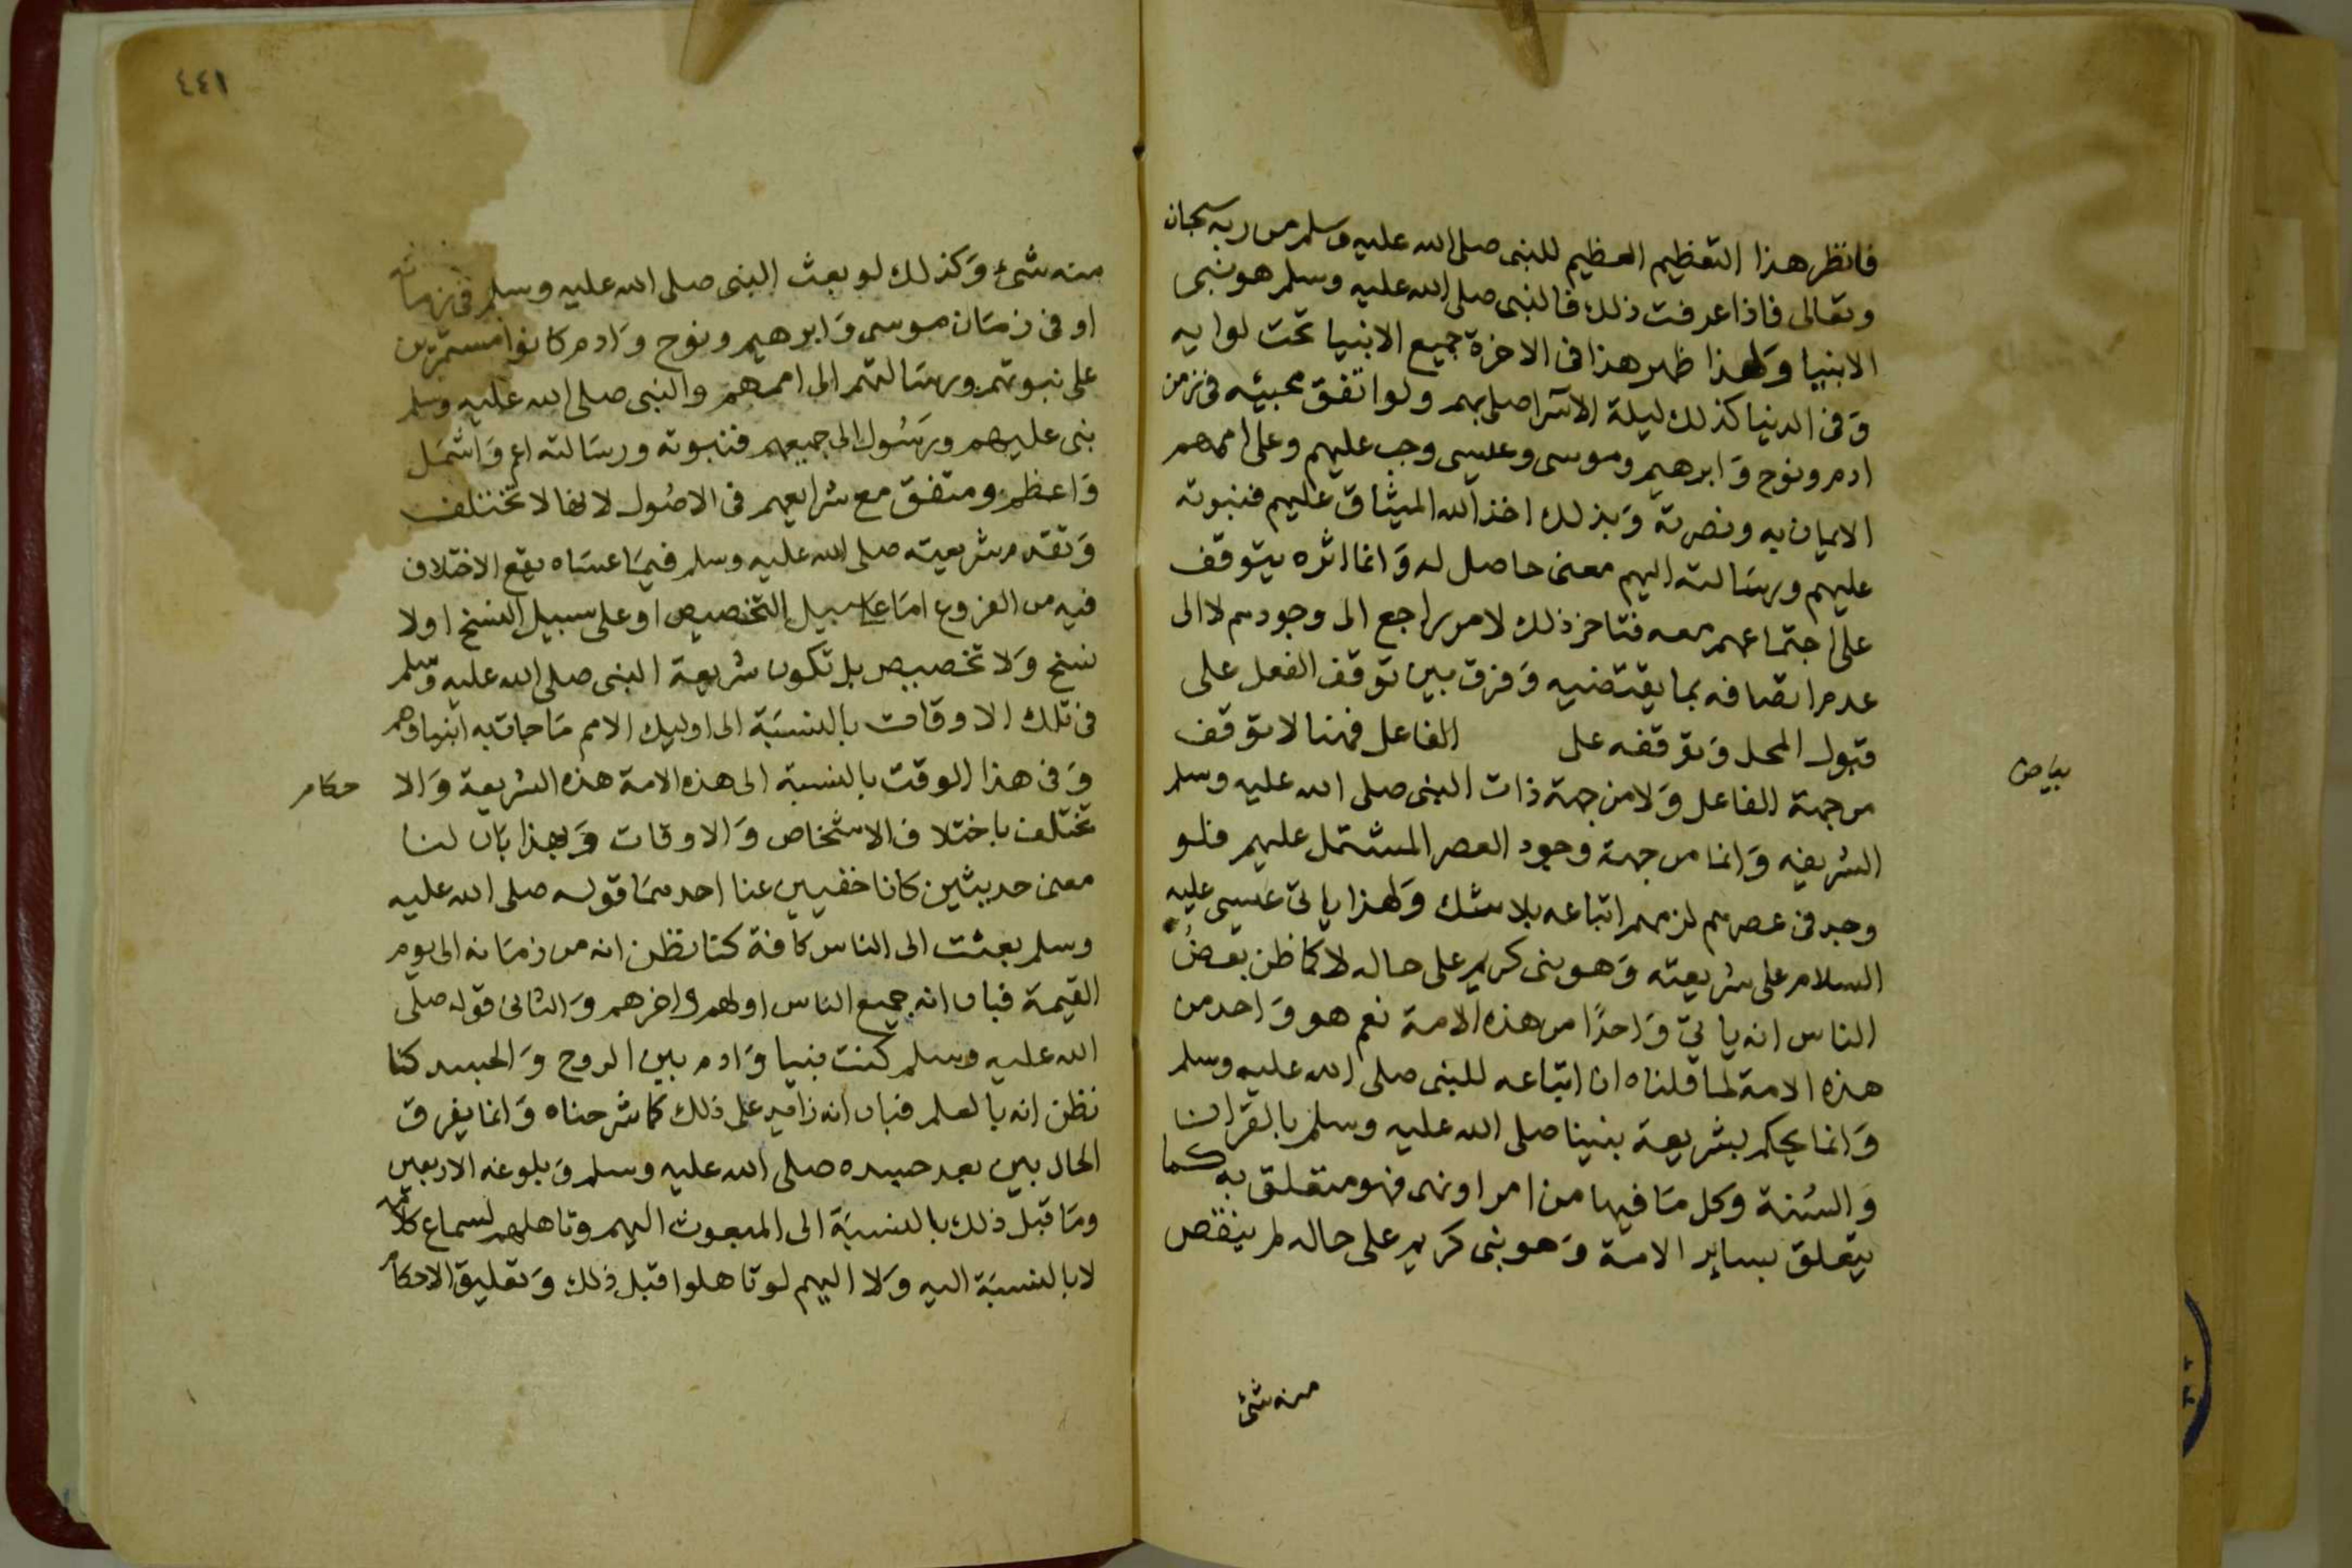 فانظر هذا التعظيم العظيم للنبى صلى الله عليه وسلم من ربه سبحان
وتعالى فاذا عرفت ذلك فالنبى صلى الله عليه وسلم هو نبى
الانبيا وَلهذا ظهر هذا فى الاخرة جميع الانبيا تحت لوايه
وَفى الدنيا كذلك ليلة الاسرا صلى بهم ولو اتفق مجيئه فى زمن
ادم ونوح وَابرهيم وموسى وعيسى وجب عليهم وعلى اممهم
الايمان به ونصرته وَبذلك اخذ الله الميثاق عليهم فنبوته
عليهم ورسَالته اليهم معنى حاصل له وَانما اثره يتوقف
على اجتماعهم معه فتاخر ذلك لامر راجع الى وجودهم لا الى
عدم اتصافه بما يقتضيه وَفرق بين توقف الفعل على
قبول المحل وَتوقفه على الفاعل فهنا لا توقف
بياض
من جهة الفاعل وَلا من جهة ذات النبى صلى الله عليه وسلم
الشريفه وَانما من جهة وجود العصر المشتمل عليهم فلو
وجد فى عصرهم لزمهم اتباعه بلا شك وَلهذا ياتى عيسى عليه
السلام على شريعته وَهو نبى كريم على حاله لا كما ظن بعضُ
الناس انه ياتى وَاحدًا من هذه الامة نعم هو وَاحد من
هذه الامة لما قلناه ان اتباعه للنبى صلى الله عليه وسلم
وَانما يحكم بشريعة نبينا صلى الله عليه وسلم بالقران
وَالسُنة وكل مَا فيها من امر او نهى فهو متعلق به كما
يتعلق بساير الامة وَهو نبى كريم على حاله لم ينقص
منه شئ
٤٤١
منه شئ وَكذلك لو بعث النبى صلى الله عليه وسلم فى زمانه
او فى زمَان موسى وَابرهيم ونوح وَادم كانوا مستمرين
على نبوتهم ورسَالتهم الى اممهم والنبى صلى الله عليه وسلم
نبى عليهم ورسُول الى جميعهم فنبوته ورسَالته اعم وَاشمَل
وَاعظم ومتفق مع شرايعهم فى الاصُول لانها لا تختلف
وَتقدم شريعته صلى الله عليه وسلم فيمَا عسَاه يقع الاختلاف
فيه من الفروع امَا على سبيل التخصيص او على سبيل النسخ او لا
نسخ وَلا تخصيص بل تكون شريعة النبى صلى الله عليه وسّلم
فى تلك الاوقات بالنسبَة الى اوليك الامم مَا جات به انبياوهم
وَفى هذا الوقت بالنسبة الى هذه الامة هذه الشريعة وَالا حكام
تختلف باختلاف الاشخاص وَالاوقات وَبهذا بَان لنا
معنى حديثين كانا خفيين عنا احدهمَا قوله صلى الله عليه
وسلم بعثت الى الناس كافة كنا نظن انه من زمَانه الى يوم
القيمة فبان انه جميع الناس اولهم واخرهم وَالثانى قوله صلّى
الله عليه وسلم كنت نبيا وَادم بين الروح وَالجسد كنا
نظن انه بالعلم فبان انه زايد على ذلك كما شرحناه وَانما يفرق
الحال بين بعد جسده صلى الله عليه وسلم وَبلوغه الاربعين
ومَا قبل ذلك بالنسبَة الى المبعوث اليهم وتاهلهم لسماع كلامه
لا بالنسبَة اليه وَلا اليهم لو تاهلوا قبل ذلك وَتعليق الاحكام